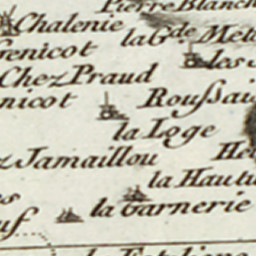 Pierre Blanch
Chalenie
la Gde Mel
Genicot
les
Chez Praud
nicot
Roussai
la Loge
z Jamaillou
la Hautu
la Garnerie